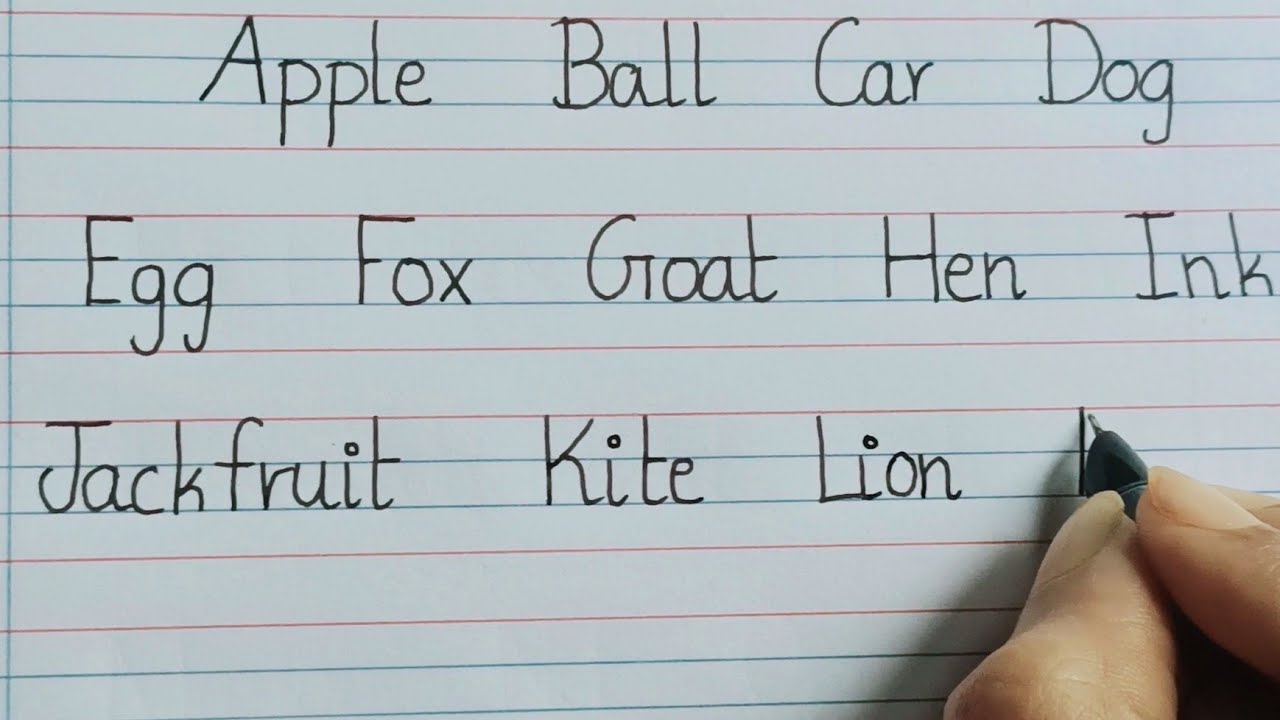 Apple Ball Car Dog
Egg Fox Goat Hen Ink
Jackfruit Kite Lion